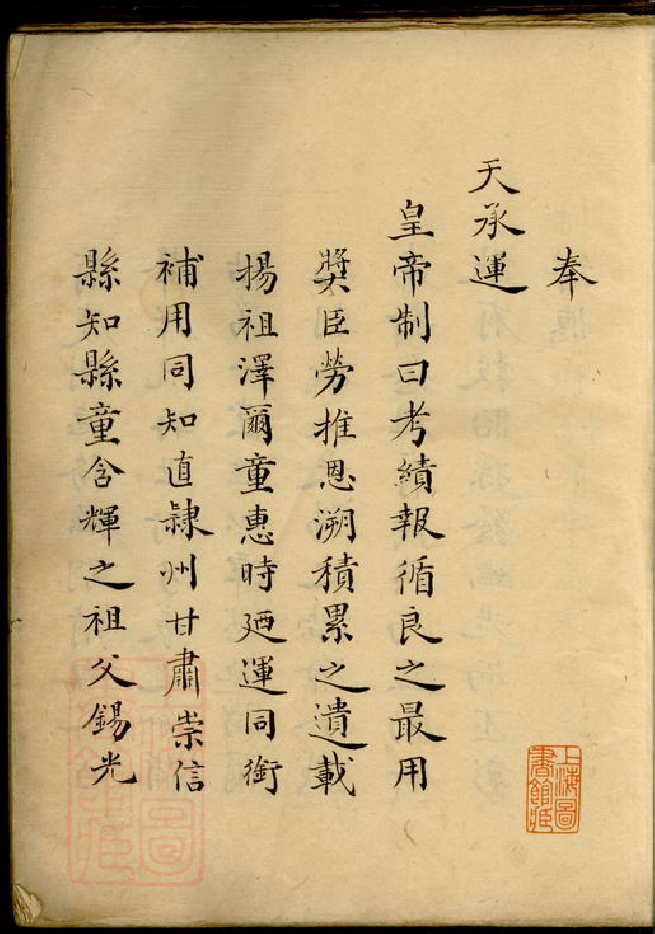 奉
天承運
皇帝制曰考績報循良之最用
奬臣勞推恩溯積累之遺載
揚祖澤爾童惠時廼運同銜
補用同知直隸州甘肅崇信
縣知縣童含輝之祖父錫光
上海圖
書館藏